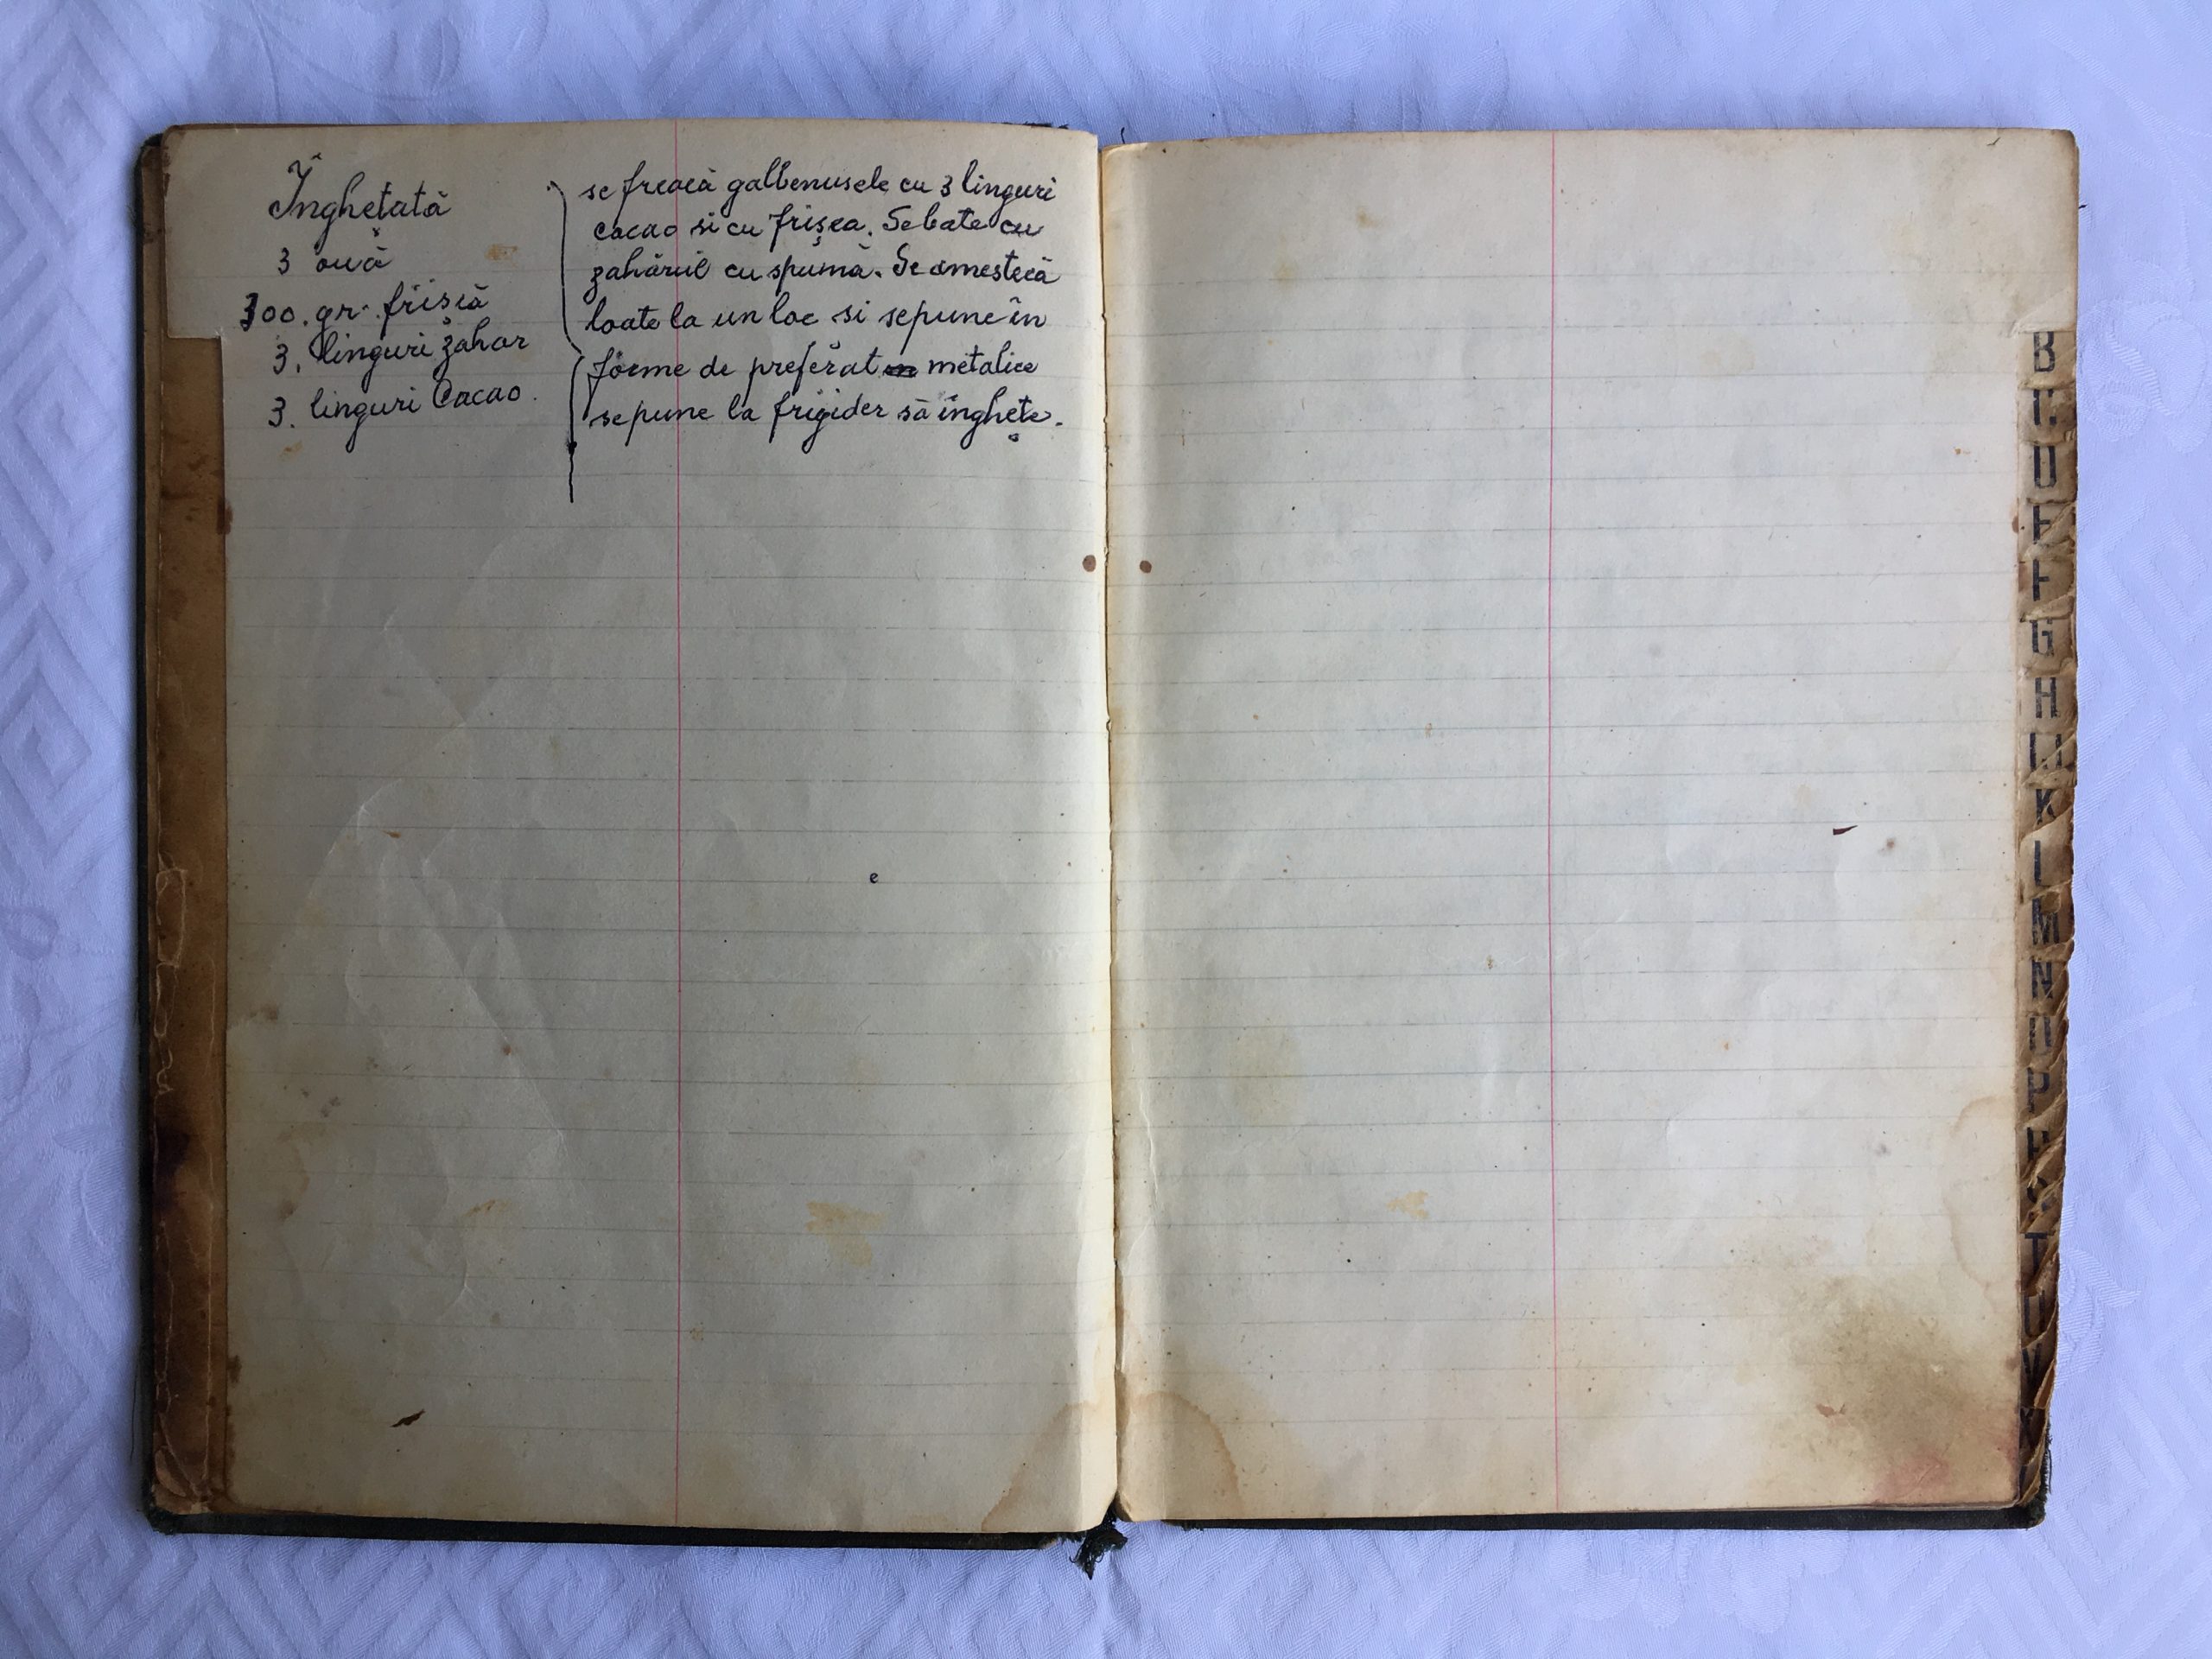 Înghețată
3 ouă
300. gr. frișcă
3. linguri zahar
3. linguri Cacao.
se freacă galbenusele cu 3 linguri
cacao si cu frișca. Se bate cu
zahărul cu spuma. Se amestecă
toate la un loc si se pune în
forme de preferat metalice
se pune la frigider să înghețe.
e
B
C
D
E
F
G
H
IJ
K
L
M
N
O
P
R
T
U
V